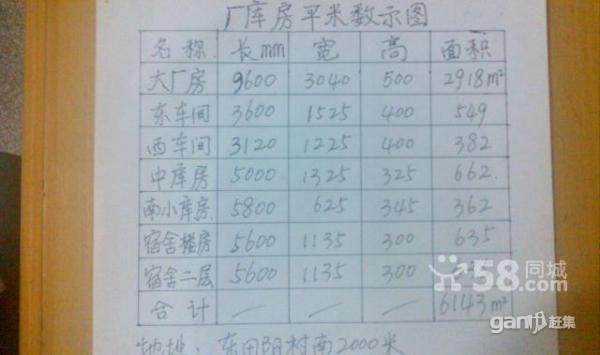 厂库房平米数示图
名称 长mm 宽 高 面积
大厂房 9600 3040 500 2918m²
东车间 3600 1525 400 549
西车间 3120 1225 400 382
中库房 5000 1325 325 662
南小库房 5800 625 345 362
宿舍楼房 5600 1135 300 635
宿舍二层 5600 1135 300
合计 — — — 6143m²
地址：东田阳村南2000米
58同城
ganji赶集